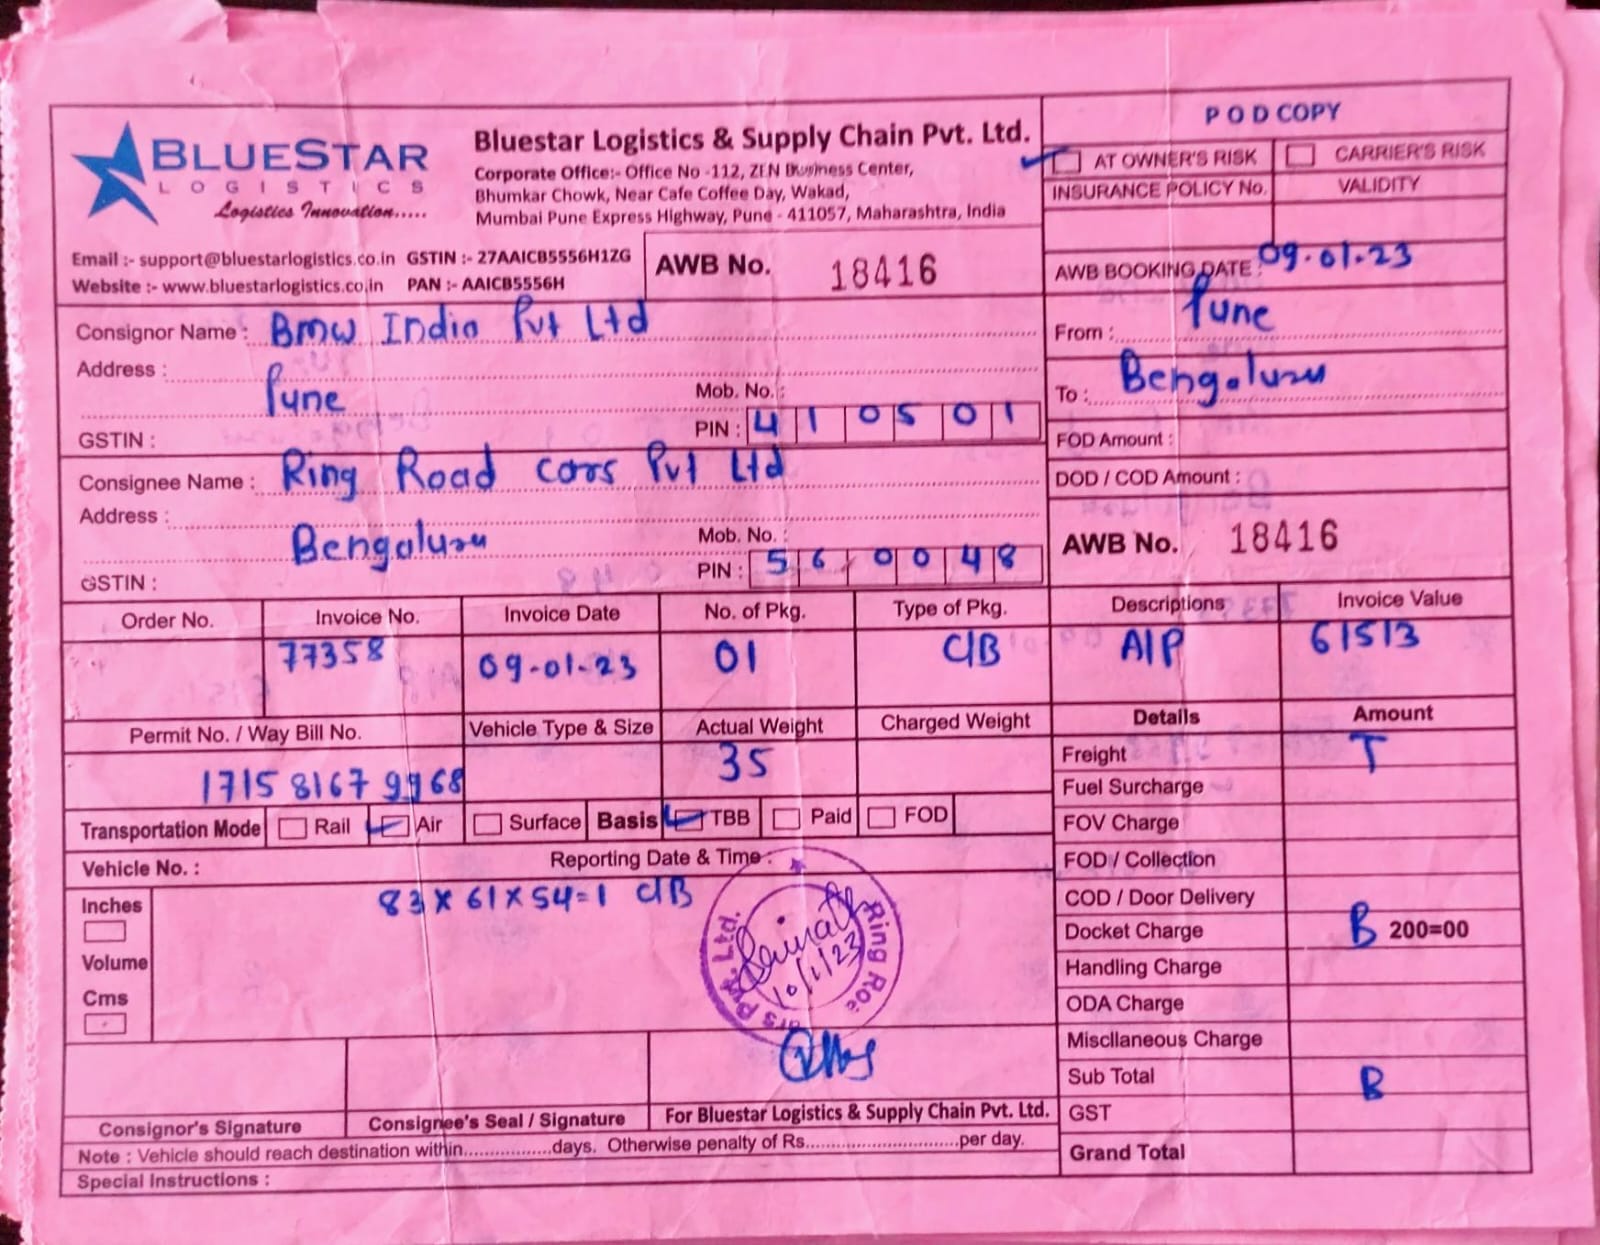 P O D COPY
BLUESTAR
LOGISTICS
Logistics Innovation.....
Bluestar Logistics & Supply Chain Pvt. Ltd.
Corporate Office:- Office No -112, ZEN Business Center,
Bhumkar Chowk, Near Cafe Coffee Day, Wakad,
Mumbai Pune Express Highway, Pune - 411057, Maharashtra, India
AT OWNER'S RISK CARRIER'S RISK
INSURANCE POLICY No. VALIDITY
Email :- support@bluestarlogistics.co.in GSTIN :- 27AAICB5556H1ZG
Website :- www.bluestarlogistics.co.in PAN :- AAICB5556H
AWB No. 18416
AWB BOOKING DATE : 09.01.23
Consignor Name : BMW India Pvt Ltd
From : Pune
Address :
Pune
Mob. No. :
To : Bengaluru
GSTIN :
PIN : 410501
FOD Amount :
Consignee Name : Ring Road Cars Pvt Ltd
DOD / COD Amount :
Address :
Bengaluru
Mob. No. :
AWB No. 18416
GSTIN :
PIN : 560048
Order No. Invoice No. Invoice Date No. of Pkg. Type of Pkg. Descriptions Invoice Value
77358 09-01-23 01 C/B A/P 61513
Permit No. / Way Bill No. Vehicle Type & Size Actual Weight Charged Weight Details Amount
1715 8167 9968 35
Freight T
Fuel Surcharge
Transportation Mode Rail Air Surface Basis TBB Paid FOD
FOV Charge
Vehicle No. : Reporting Date & Time :
FOD / Collection
83 x 61 x 54=1 C/B
Inches
COD / Door Delivery
Docket Charge B 200=00
Volume
Handling Charge
Cms
ODA Charge
Ring Roa
rs Pvt. Ltd.
10/1/23
Miscllaneous Charge
Sub Total B
Consignor's Signature Consignee's Seal / Signature For Bluestar Logistics & Supply Chain Pvt. Ltd.
GST
Note : Vehicle should reach destination within.................days. Otherwise penalty of Rs..............................per day.
Grand Total
Special Instructions :